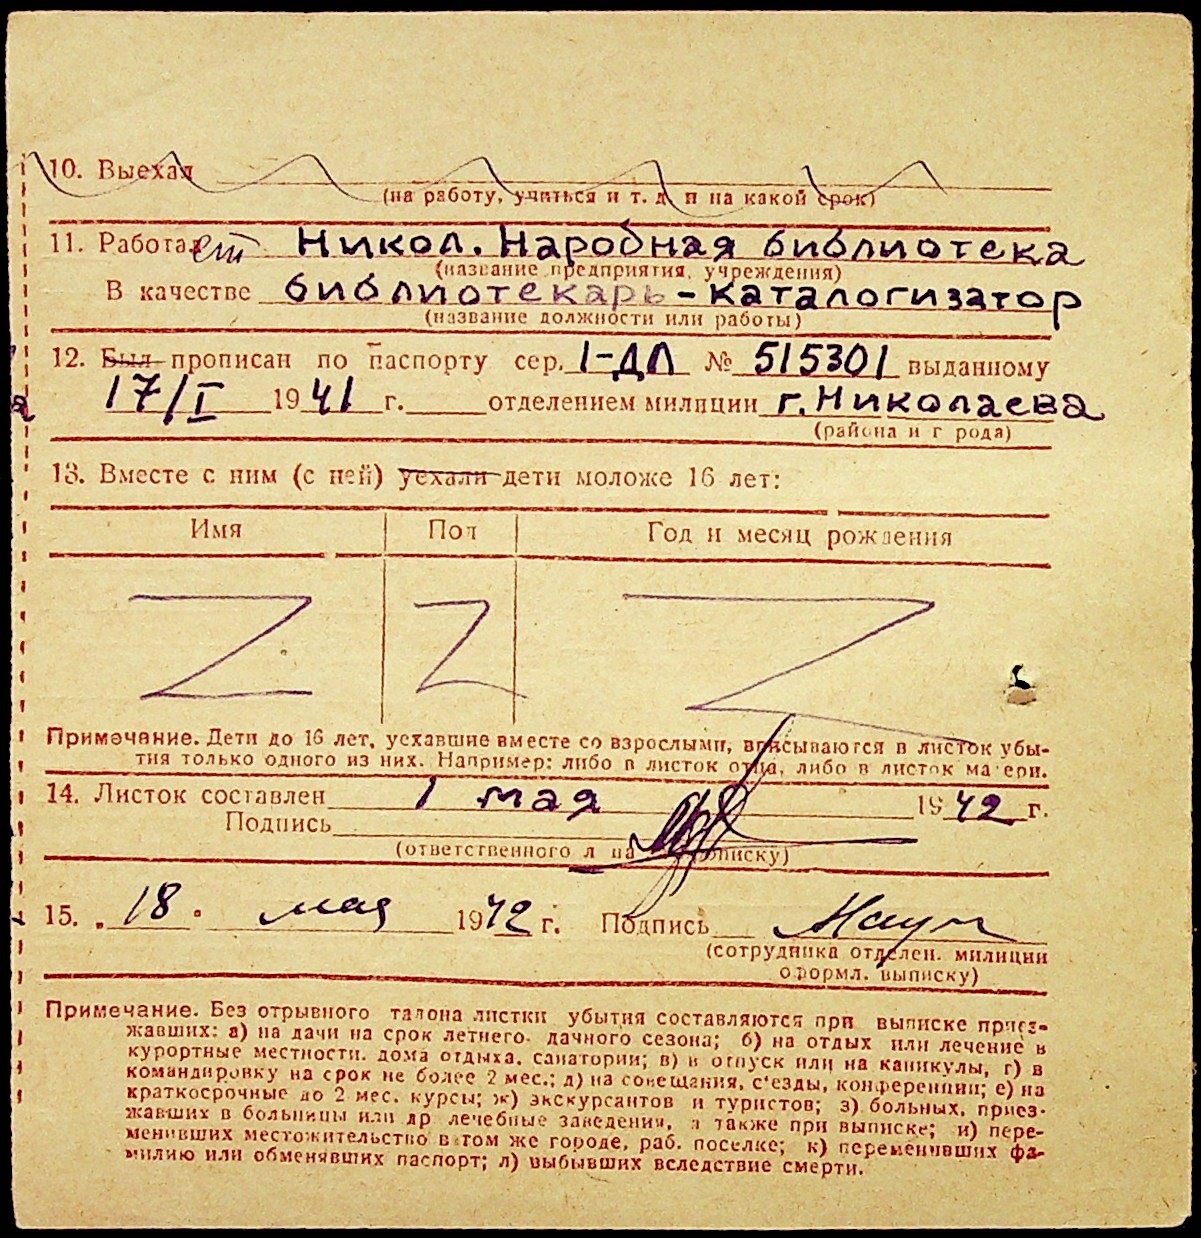 10. Выехал
(на работу, учиться и т. д. и на какой срок)
11. Работает Никол. Народная библиотека
(название предприятия, учреждения)
В качестве библиотекарь-каталогизатор
(название должности или работы)
12. Был прописан по паспорту сер. I-ДЛ № 515301 выданному
17/I 1941 г. отделением милиции г. Николаева
(района и города)
13. Вместе с ним (с ней) уехали дети моложе 16 лет:
Имя Пол Год и месяц рождения
Примечание. Дети до 16 лет, уехавшие вместе со взрослыми, вписываются в листок убы-
тия только одного из них. Например: либо в листок отца, либо в листок матери.
14. Листок составлен 1 мая 1942 г.
Подпись
(ответственного л на выписку)
15. „18" мая 1942 г. Подпись
(сотрудника отделен. милиции
оформл. выписку)
Примечание. Без отрывного талона листки убытия составляются при выписке приез-
жавших: а) на дачи на срок летнего дачного сезона; б) на отдых или лечение в
курортные местности, дома отдыха, санатории; в) в отпуск или на каникулы, г) в
командировку на срок не более 2 мес.; д) на совещания, с'езды, конференции; е) на
краткосрочные до 2 мес. курсы; ж) экскурсантов и туристов; з) больных, приез-
жавших в больницы или др лечебные заведения, а также при выписке; и) пере-
менивших местожительство в том же городе, раб. поселке; к) переменивших фа-
милию или обменявших паспорт; л) выбывших вследствие смерти.